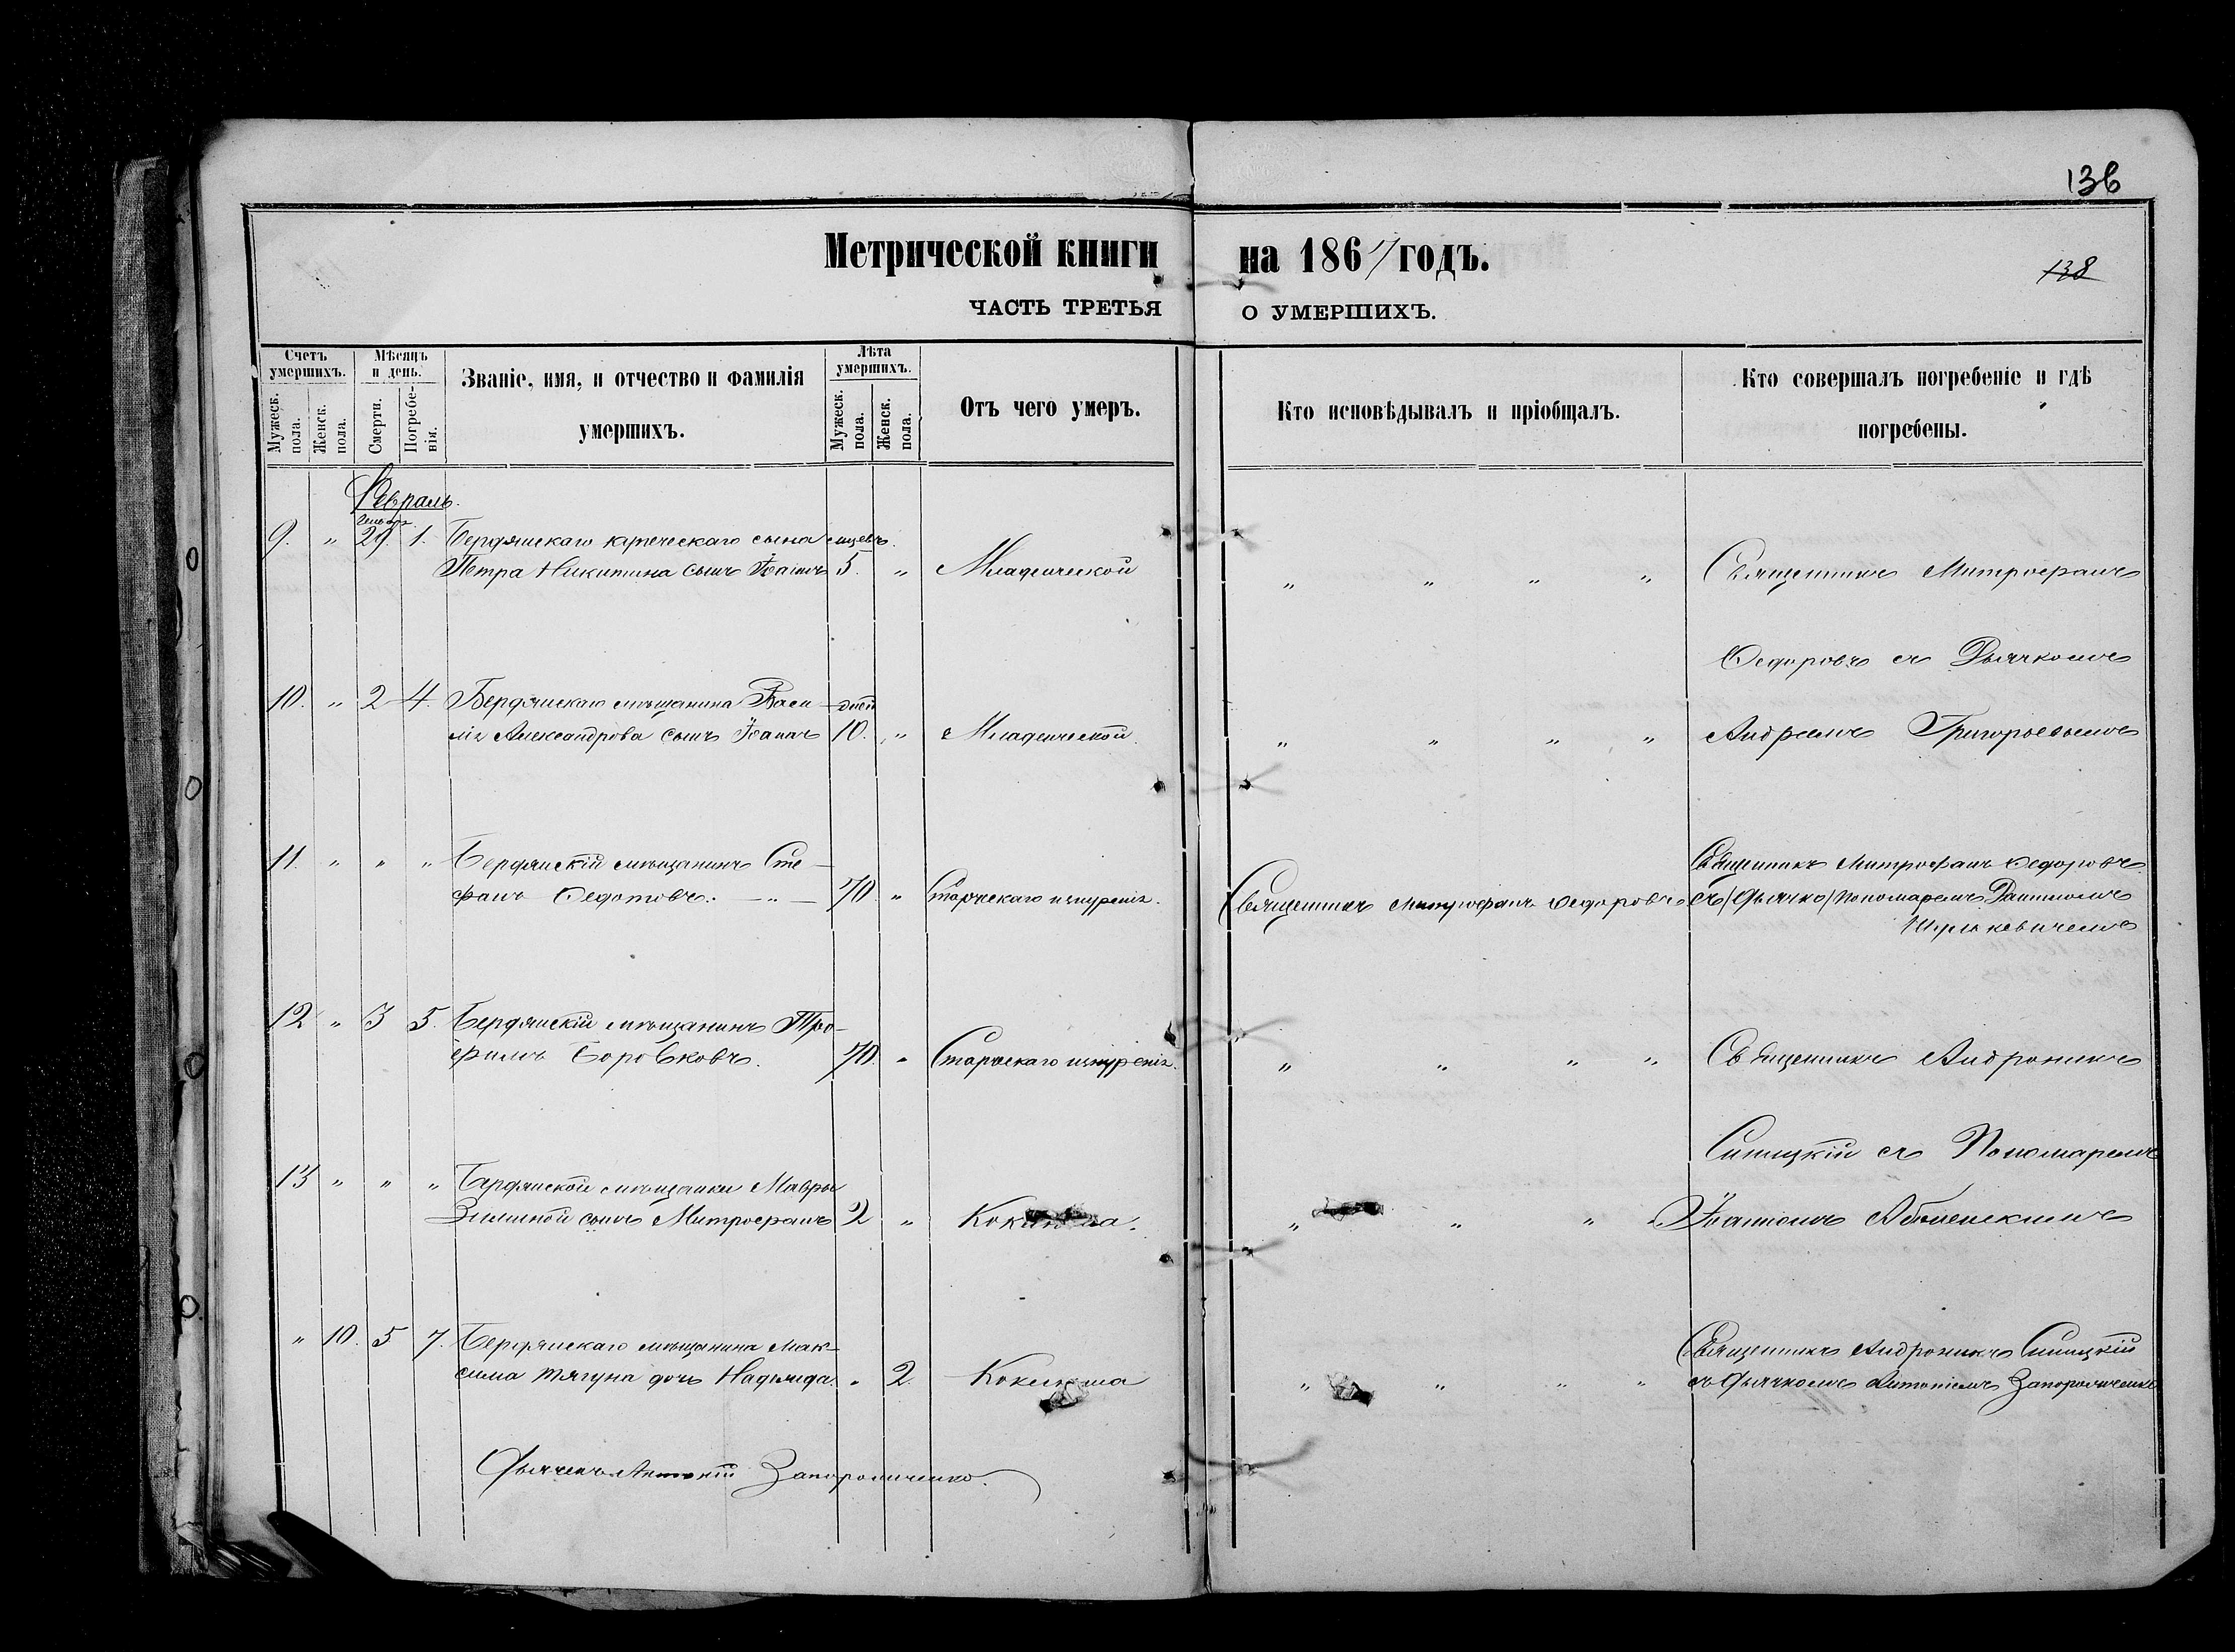 136
Метрической книги на 1867 годъ.
138
ЧАСТЬ ТРЕТЬЯ О УМЕРШИХЪ.
Счетъ умершихъ.
Мужеск. пола.
Женск. пола.
Мѣсяцъ и день.
Смерти.
Погребенія.
Званіе, имя, и отчество и фамилія умершихъ.
Лѣта умершихъ.
Мужеск. пола.
Женск. пола.
Отъ чего умеръ.
Кто исповѣдывалъ и пріобщалъ.
Кто совершалъ погребеніе и гдѣ погребены.
Февраль.
9. " 29. 1. Бердянскаго купеческаго сына мцевъ.
Петра Никитина сынъ Іоаннъ 5. " Младенческой " " " " Священникъ Митрофанъ
Ѳедоровъ съ Дьячкомъ
10. " 2 4. Бердянскаго мѣщанина Васи- дней
лія Александрова сынъ Іоаннъ 10. " Младенческой. " " " " Андреемъ Григорьевымъ
11. " " " Бердянскій мѣщанинъ Сте-
фанъ Ѳедотовъ. — " — 70. " Старческаго изнуренія. Священникъ Митрофанъ Ѳедоровъ
Священникъ Митрофанъ Ѳедоровъ
съ /дьячко/ Пономаремъ Даніиломъ
12 " 3 5. Бердянскій мѣщанинъ Тро-
фимъ Боровковъ. 70. " Старческаго изнуренія. " " " " Священникъ Андроникъ
Синицкій съ Пономаремъ
13 " " " Бердянской мѣщанки Мавры
Зиминой сынъ Митрофанъ 2 " Коклюша. " " " " Іоанномъ
" 10. 5 7. Бердянскаго мѣщанина Мак-
сима Тягуна дочь Надежда. " 2. Коклюша " " " "
Священникъ Андроникъ Синицкій
съ дьячкомъ Антоніемъ Запорожченко
Дьячекъ Антоній Запорожченко.